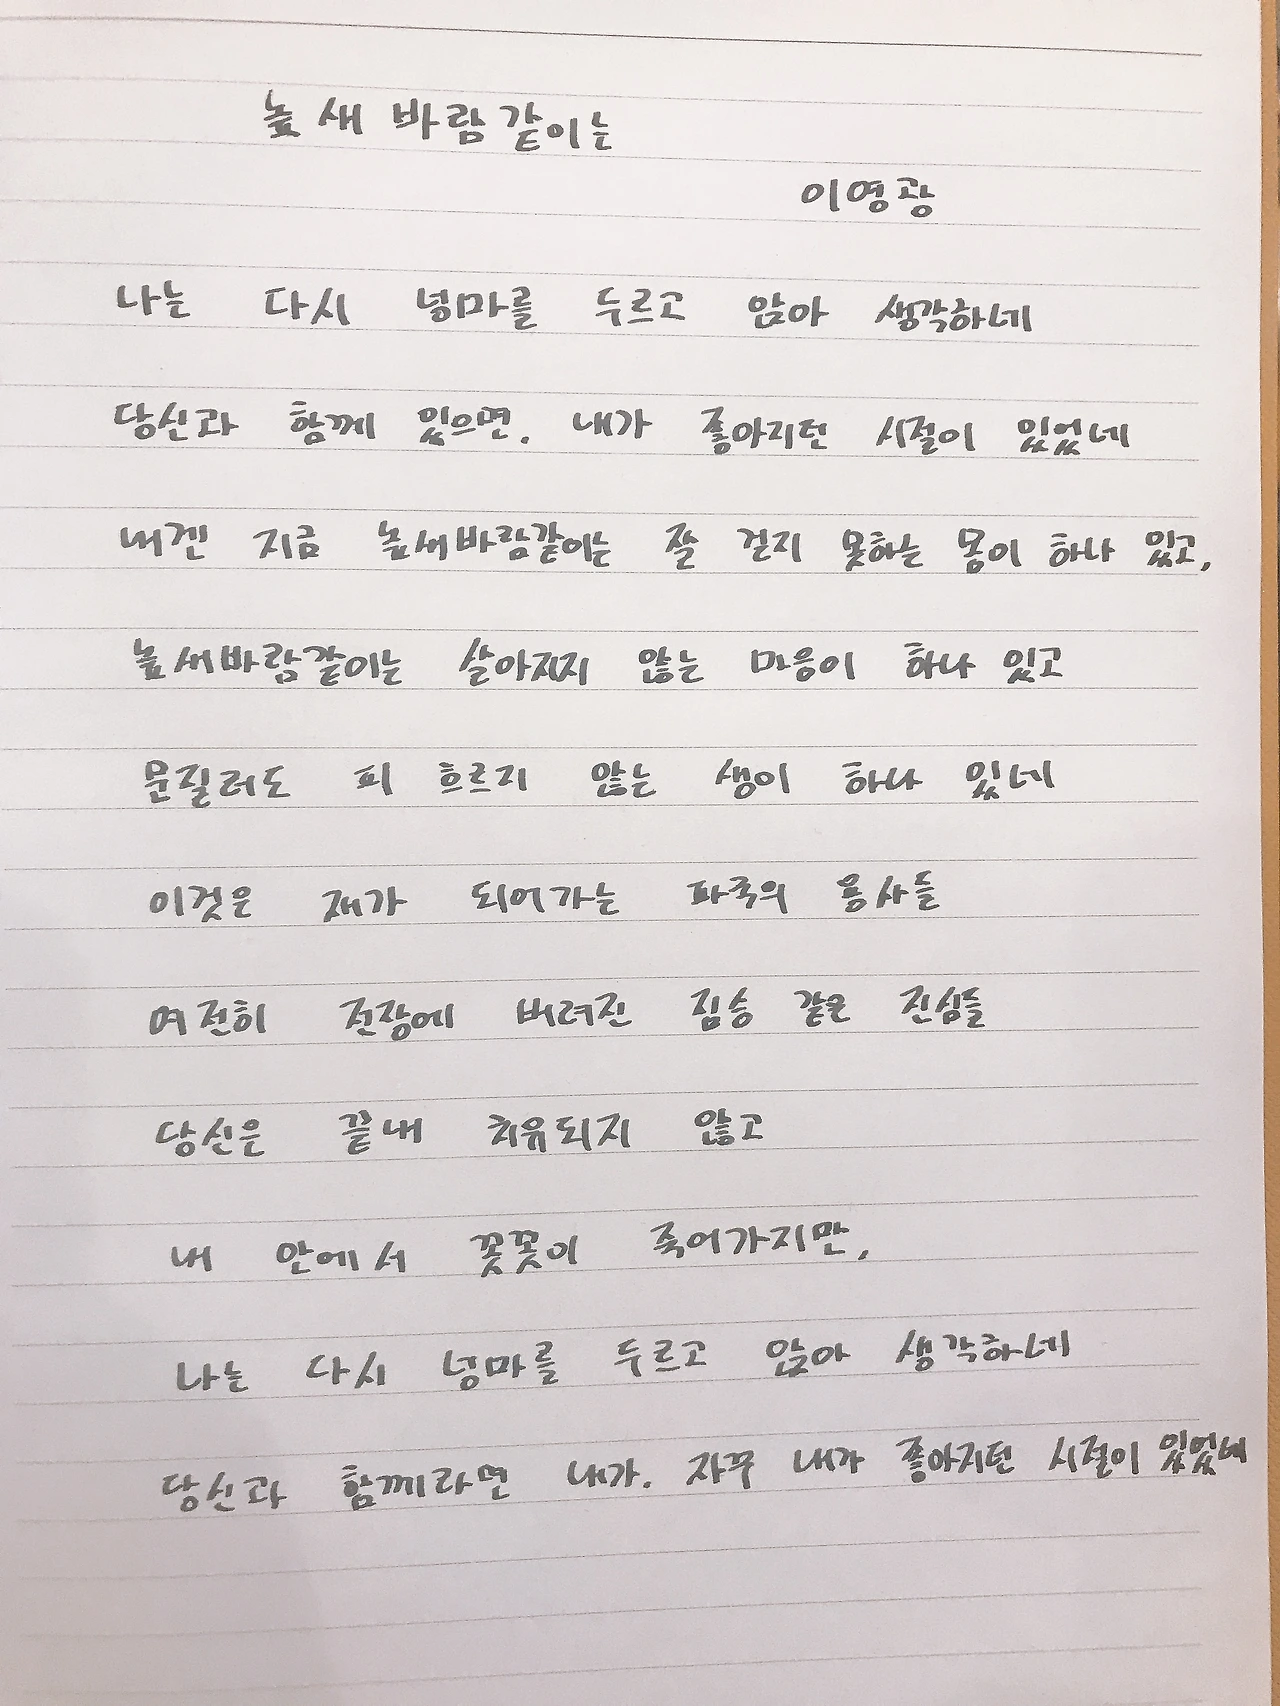 높새바람같이는
이영광
나는 다시 넝마를 두르고 앉아 생각하네
당신과 함께 있으면, 내가 좋아지던 시절이 있었네
내겐 지금 높새바람같이는 잘 걷지 못하는 몸이 하나 있고,
높새바람같이는 살아지지 않는 마음이 하나 있고
문질러도 피 흐르지 않는 생이 하나 있네
이것은 재가 되어가는 파국의 용사들
여전히 전장에 버려진 짐승 같은 진심들
당신은 끝내 치유되지 않고
내 안에서 꽃꽃이 죽어가지만,
나는 다시 넝마를 두르고 앉아 생각하네
당신과 함께라면 내가. 자꾸 내가 좋아지던 시절이 있었네